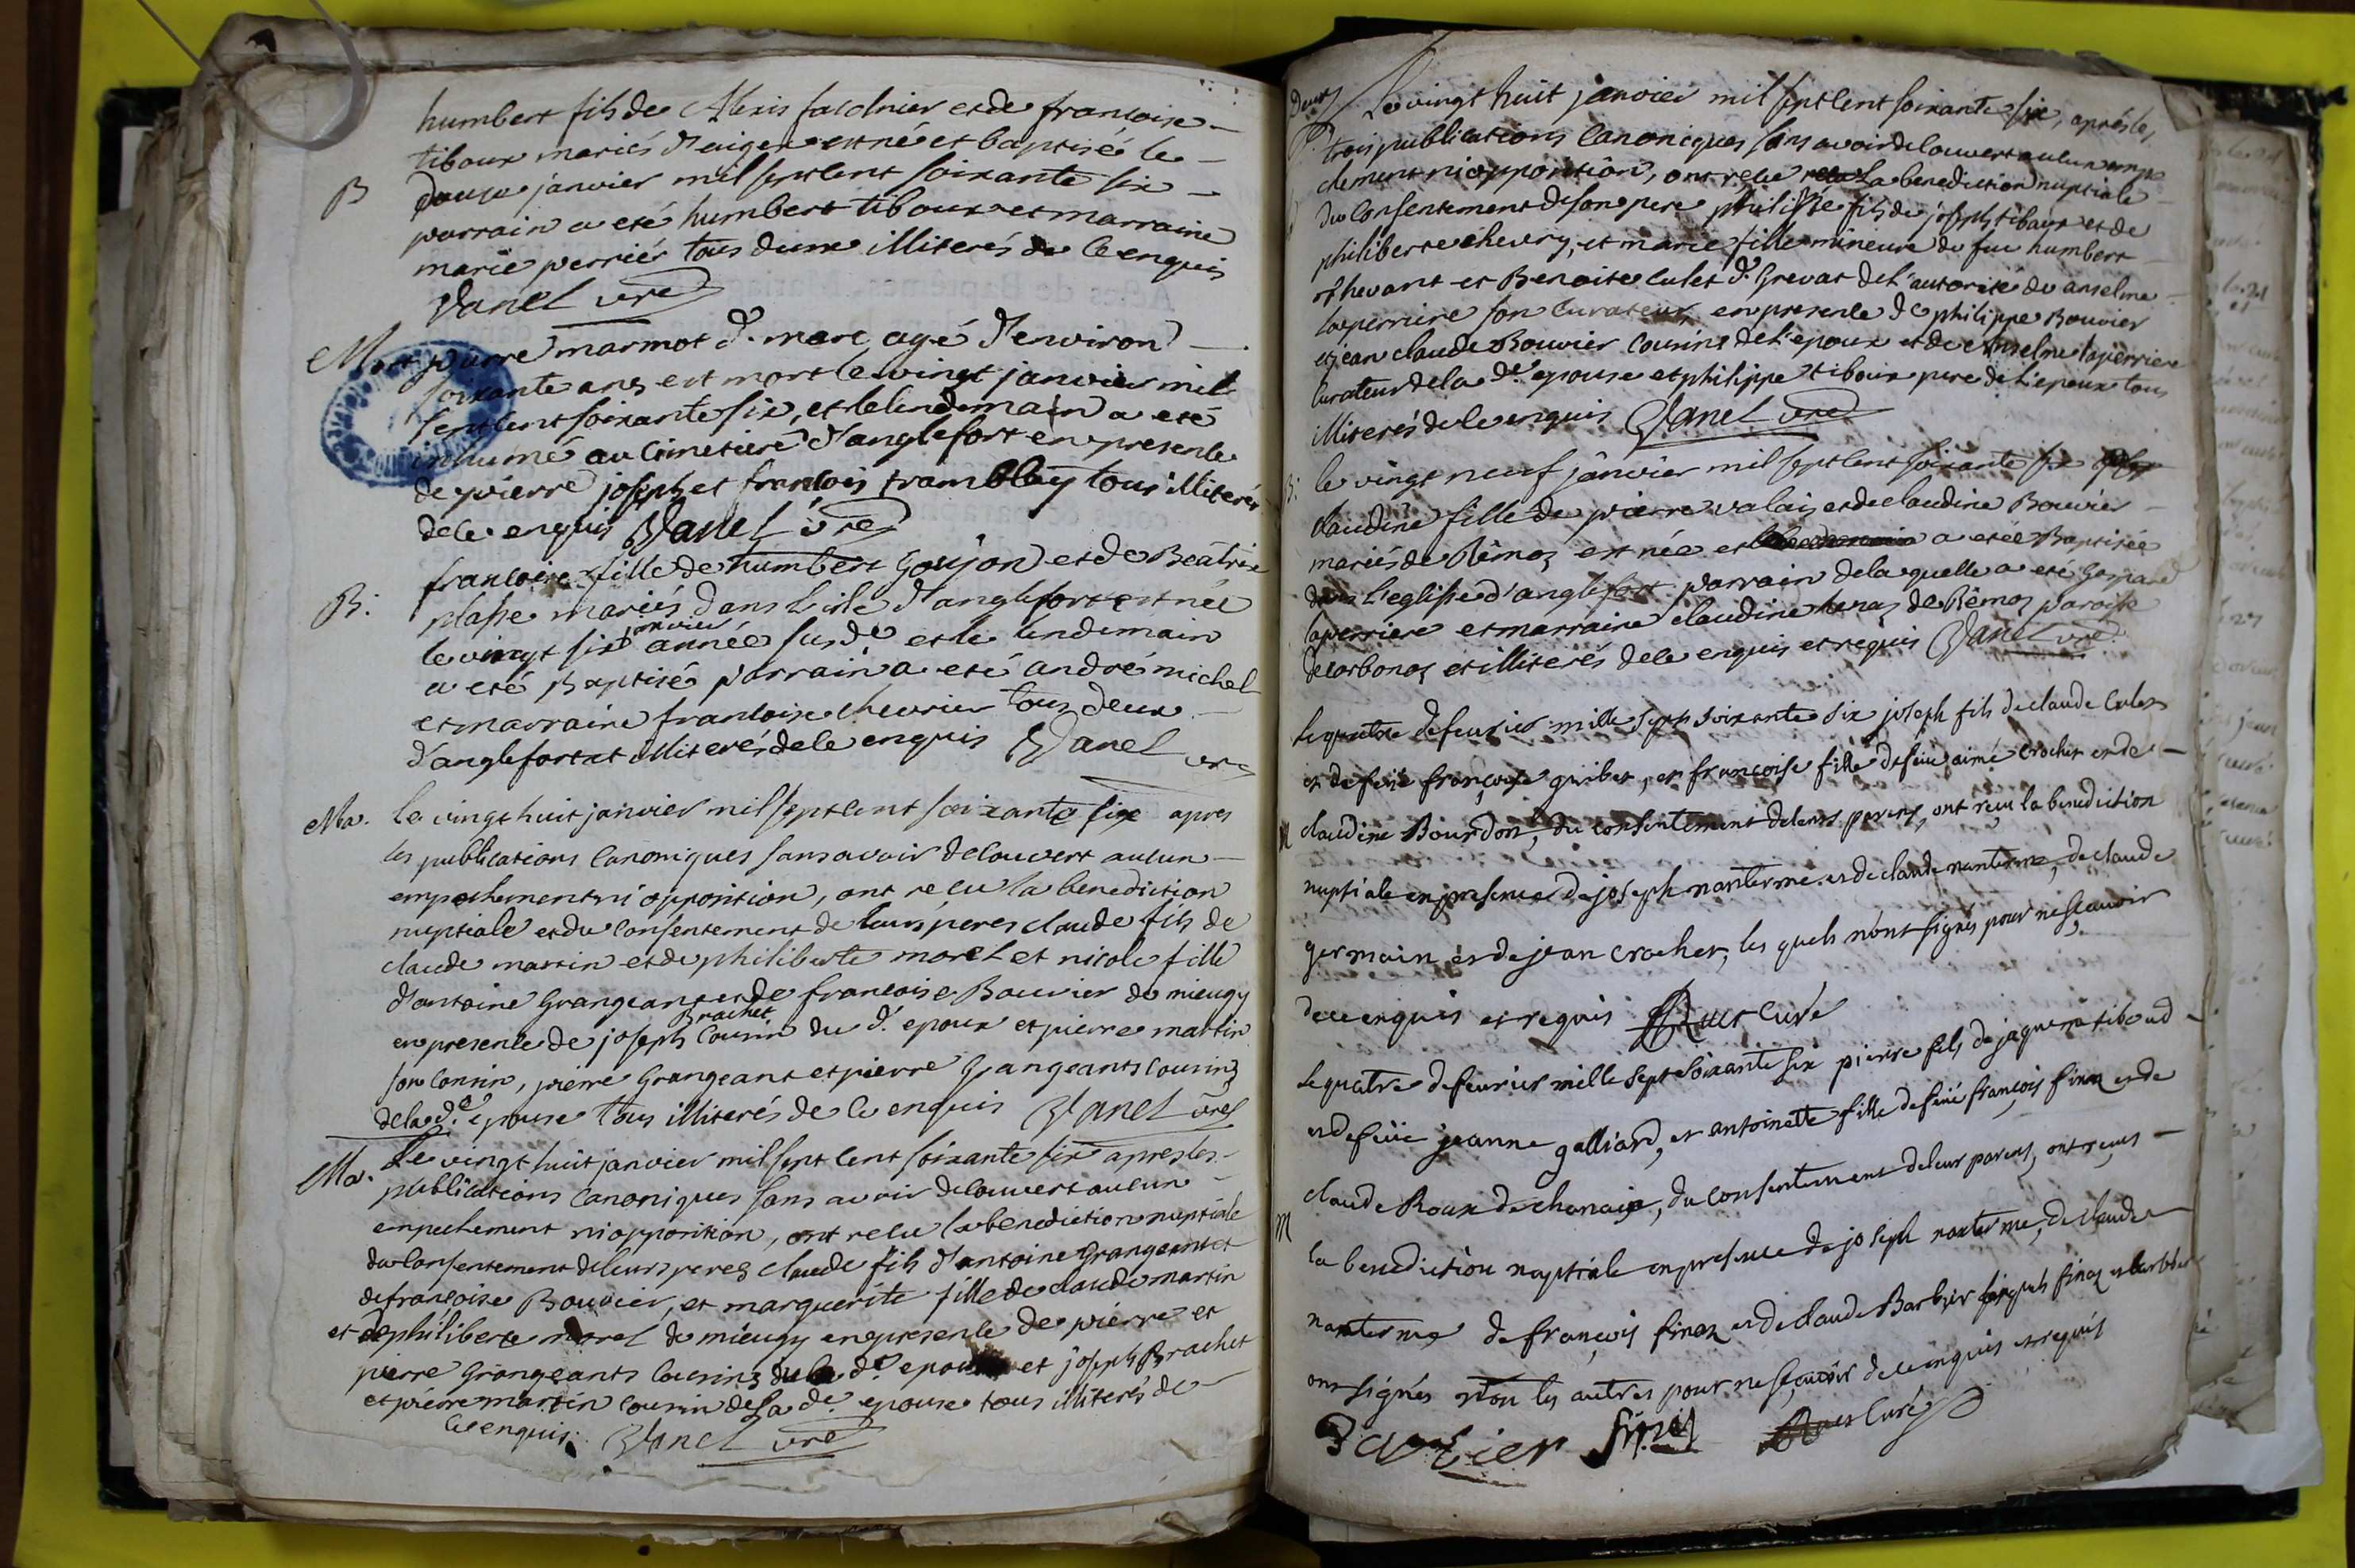 humbert fils de Alexis falchnier et de francoise
tiboux mariés d'aigex est né et baptisé le
B
douze janvier mil sept cent soixante six
parrain a eté humbert tiboux et marraine
marie perrier tous deux illiterés de ce enquis
Vanel vre
Mort pierre marmot d. marc agé d'environ
soixante ans est mort le vingt janvier mil
sept cent soixante six, et le lendemain a eté
inhumé au cimetiere d'anglefort en presence
de pierre joseph et francois tramblay tous illiterés
de ce enquis Vanel vre
francoise fille de humbert Goujon et de Beatrix
B.
plasse mariés dans l'isle d'anglefort est née
le vingt six janvier année susde et le lendemain
a eté Baptisé parrain a eté andré michel
et marraine francoise chevrier tous deux
d'anglefort et illiterés de ce enquis Vanel vre
Ma. le vingt huit janvier mil sept cent soixante six apres
les publications canoniques sans avoir decouvert aucun
empechement ni opposition, ont recu la benediction
nuptiale et du consentement de leurs peres claude fils de
claude martin et de philiberte morel et nicole fille
d'antoine Grangeant et de francoise Bouvier de mieugy
en presence de joseph Brachet cousin du d. epoux et pierre martin
son cousin, pierre Grangeant et pierre Grangeants cousins
de la de epouse tous illiterés de ce enquis Vanel vre
Ma. Le vingt huit janvier mil sept cent soixante six apres les
publications canoniques sans avoir decouvert aucun
empechement ni opposition, ont recu la benediction nuptiale
du consentement de leurs peres claude fils d'antoine Grangeant et
de francoise Bouvier, et marguerite fille de claude martin
et de philiberte morel de mieugy en presence de pierre et
pierre Grangeants cousins du d. epoux et joseph Brachet
et pierre martin cousin de la de epouse tous illiterés de
ce enquis. Vanel vre
Le vingt huit janvier mil sept cent soixante six, après les
trois publications canoniques sans avoir decouvert aucun empe
chement ni opposition, ont recu la benediction nuptiale
du consentement de son pere philippe fils de joseph tiboux et de
philiberte chevry, et marie fille mineure de feu humbert
thevant et Benoite culet d. Grevat de l'autorité de anselme
laperriere son curateur en presence de philippe Bouvier
et jean claude Bouvier cousins de l'epoux et de anselme laperriere
curateur de la de epouse et philippe tiboux pere de l'epoux tous
illiterés de ce enquis Vanel vre
B. le vingt neuf janvier mil sept cent soixante six
claudine fille de pierre valais et de claudine Bouvier
mariés de Rêmoz est née et a eteé Baptisée
dans l'eglise d'anglefort parrain de la quelle a eté Gaspard
laperriere et marraine claudine henaz de Rêmoz paroisse
de corbonoz et illiterés de ce enquis et requis Vanel vre
Le quatre de feurier mille sept soixante six joseph fils de claude Culet
et de feüe françoise guibet, et francoise fille de feüe aimé crochet et de
M
claudine Bourdon, du consentement de leurs parens, ont reçu la benediction
nuptiale en presence de joseph nanterme et de claude nanterme, de claude
germain et de jean crochet, les quels n'ont signés pour ne sçauoir
de ce enquis et requis Ruet Curé
Le quatre de feurier mille sept soixante six pierre fils de jaqueme tiboud
et de feüe jeanne galliard, et antoinette fille de feüe françois finaz et de
claude Roux de chanaix, du consentement de leur parens, ont reçus
M
la benediction nuptiale en presence de joseph nanterme, de claude
nanterme de françois finaz et de claude Barbier lesquels finaz et barbier
ont signés non les autres pour ne sçauoir de ce enquis et requis
Barbier finaz Ruet Curé